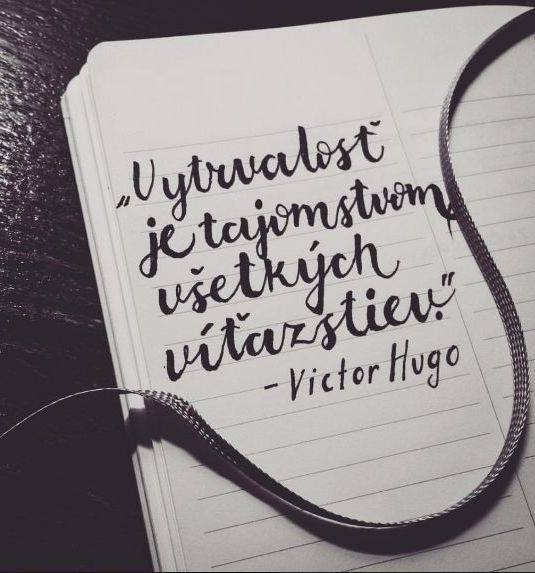 „Vytrvalosť
je tajomstvom
všetkých
víťazstiev."
- Victor Hugo